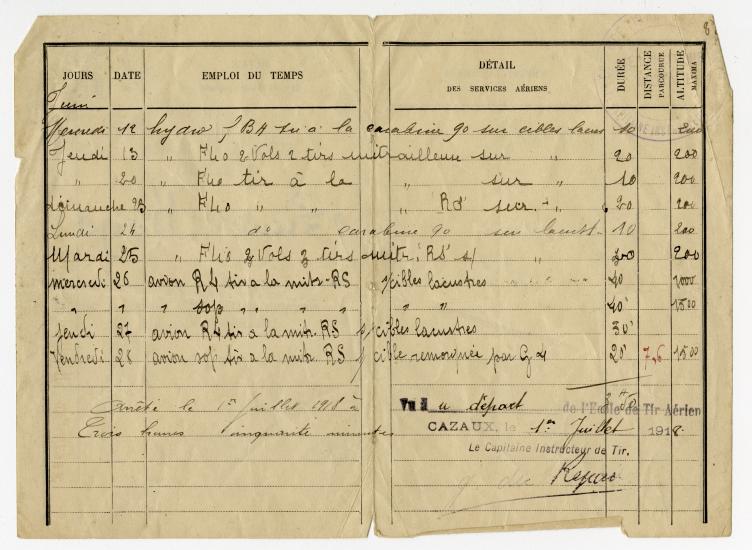 8
JOURS DATE EMPLOI DU TEMPS DÉTAIL DES SERVICES AÉRIENS DURÉE DISTANCE PARCOURUE ALTITUDE MAXIMA
Juin
Mercredi 12 hydro FBA tir à la carabine 90 sur cibles lacus 10 200
Jeudi 13 " F40 2 Vols 2 tirs mitrailleuse sur " 20 200
" 20 " F40 tir à la " sur " 10 200
dimanche 23 " F40 " " " RS sur " 20 200
Lundi 24 do carabine 90 sur lacust. 10 200
Mardi 25 " F40 2 Vols 2 tirs mitr. RS s/ 200
mercredi 26 avion R4 tir a la mitr. RS s/cibles lacustres 40 1000
" " " sop " " " " " 40' 1500
Jeudi 27 avion R4 tir a la mitr. RS s/cibles lacustres 30'
Vendredi 28 avion sop tir a la mitr. RS s/ cible remorquée par G4 20' 7,6 1500
3h50
Arrêté le 1er Juillet 1918 à
Trois heures cinquante minutes
Vu au départ de l'Ecole de Tir Aérien
CAZAUX, le 1er Juillet 1918.
Le Capitaine Instructeur de Tir.